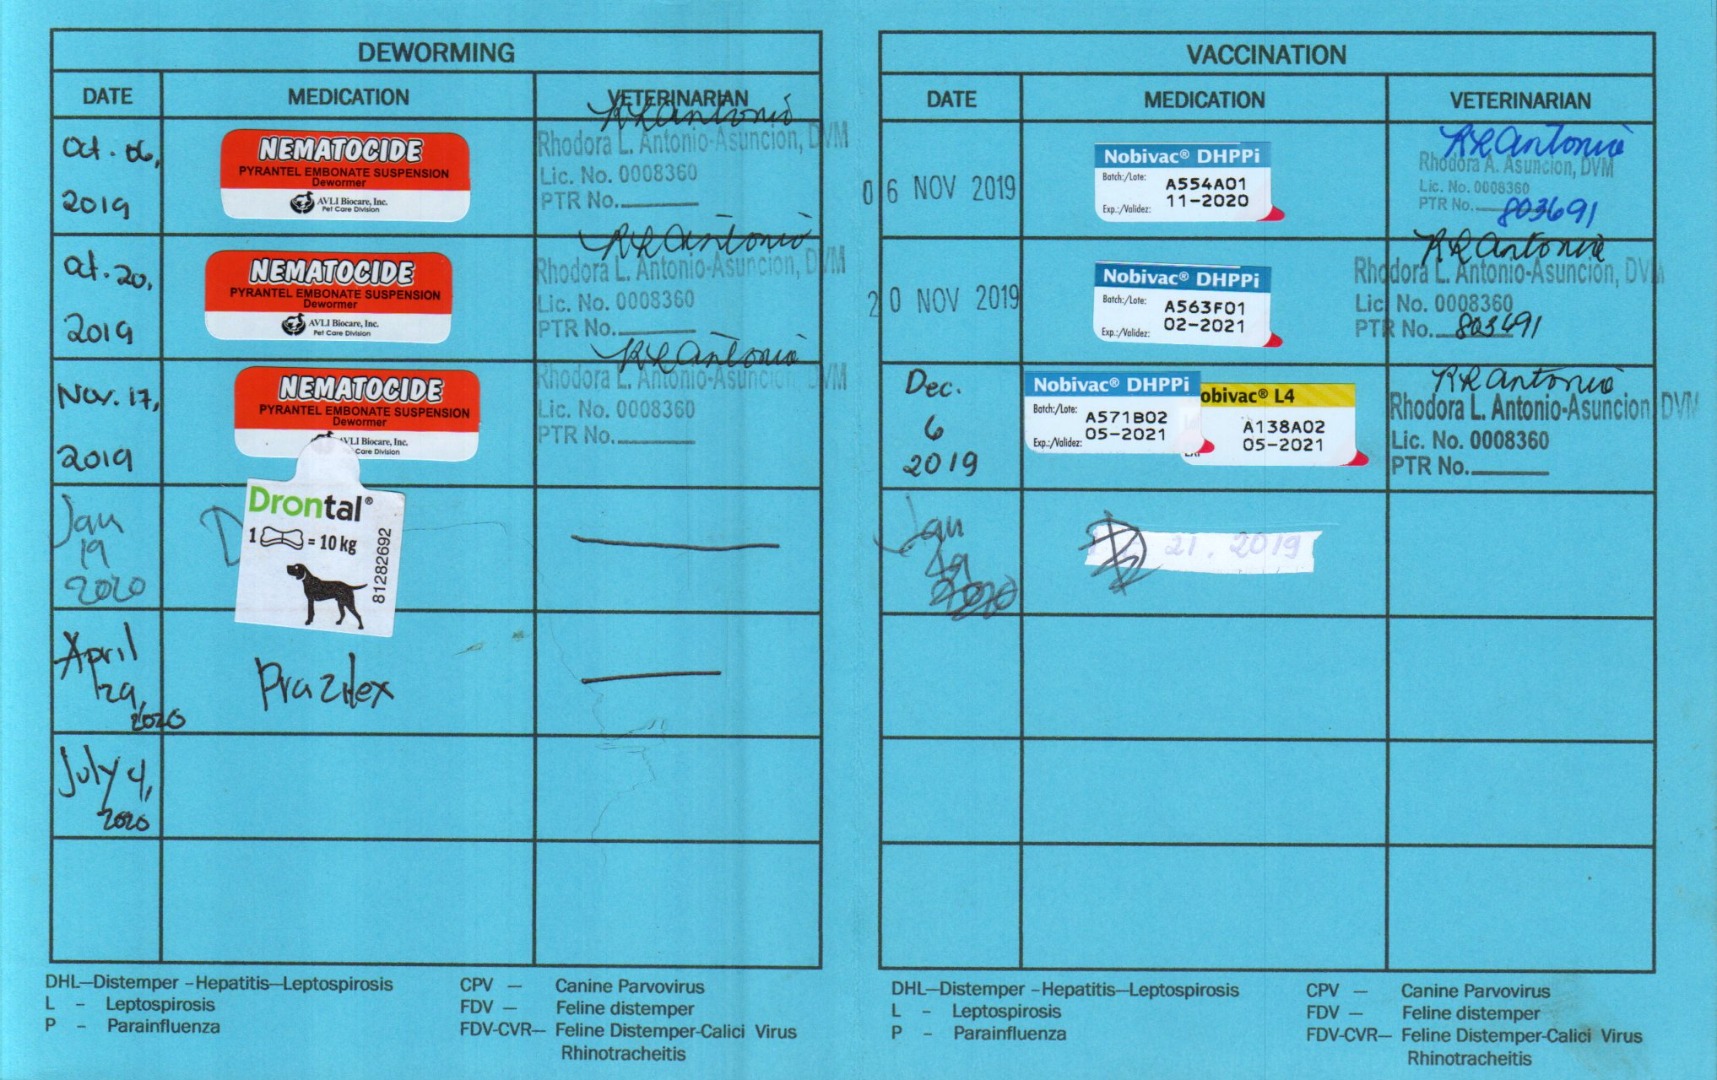 DEWORMING
DATE MEDICATION VETERINARIAN
Oct. 06,
2019
NEMATOCIDE
PYRANTEL EMBONATE SUSPENSION
Dewormer
AVLI Biocare, Inc.
Pet Care Division
RLAntonio
Rhodora L. Antonio-Asuncion, DVM
Lic. No. 0008360
PTR No.
Oct. 20,
2019
NEMATOCIDE
PYRANTEL EMBONATE SUSPENSION
Dewormer
AVLI Biocare, Inc.
Pet Care Division
RLAntonio
Rhodora L. Antonio-Asuncion, DVM
Lic. No. 0008360
PTR No.
Nov. 17,
2019
NEMATOCIDE
PYRANTEL EMBONATE SUSPENSION
Dewormer
VLI Biocare, Inc.
Care Division
RLAntonio
Rhodora L. Antonio-Asuncion, DVM
Lic. No. 0008360
PTR No.
Jan
19
2020
D
Drontal®
1 = 10 kg
81282692
April
29,
2020
Prazitex
July 4,
2020
DHL—Distemper –Hepatitis—Leptospirosis
L – Leptospirosis
P – Parainfluenza
CPV — Canine Parvovirus
FDV — Feline distemper
FDV-CVR— Feline Distemper-Calici Virus
Rhinotracheitis
VACCINATION
DATE MEDICATION VETERINARIAN
06 NOV 2019
Nobivac® DHPPi
Batch:/Lote: A554A01
Exp.:/Validez: 11-2020
RLAntonio
Rhodora A. Asuncion, DVM
Lic. No. 0008360
PTR No. 803691
20 NOV 2019
Nobivac® DHPPi
Batch:/Lote: A563F01
Exp.:/Validez: 02-2021
RLAntonio
Rhodora L. Antonio-Asuncion, DVM
Lic. No. 0008360
PTR No. 803691
Dec.
6
2019
Nobivac® DHPPi
Batch:/Lote: A571B02
Exp.:/Validez: 05-2021
obivac® L4
A138A02
05-2021
RLAntonio
Rhodora L. Antonio-Asuncion, DVM
Lic. No. 0008360
PTR No.
Jan
19
2020
21. 2019
DHL—Distemper –Hepatitis—Leptospirosis
L – Leptospirosis
P – Parainfluenza
CPV — Canine Parvovirus
FDV — Feline distemper
FDV-CVR— Feline Distemper-Calici Virus
Rhinotracheitis